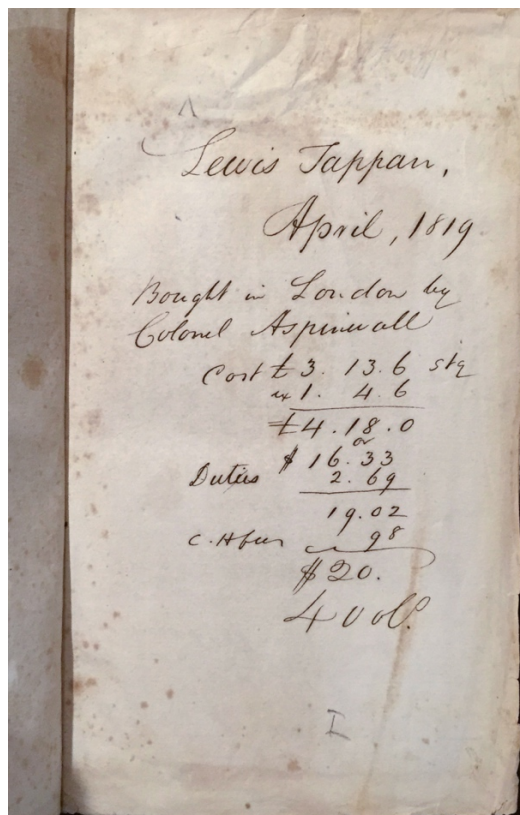 Lewis Tappan,
April, 1819
Bought in London by
Colonel Aspinwall
Cost £3. 13. 6 stg
ex 1. 4. 6
£4. 18. 0
or
$ 16. 33
Duties 2. 69
19.02
98
$20.
4 vol.
I